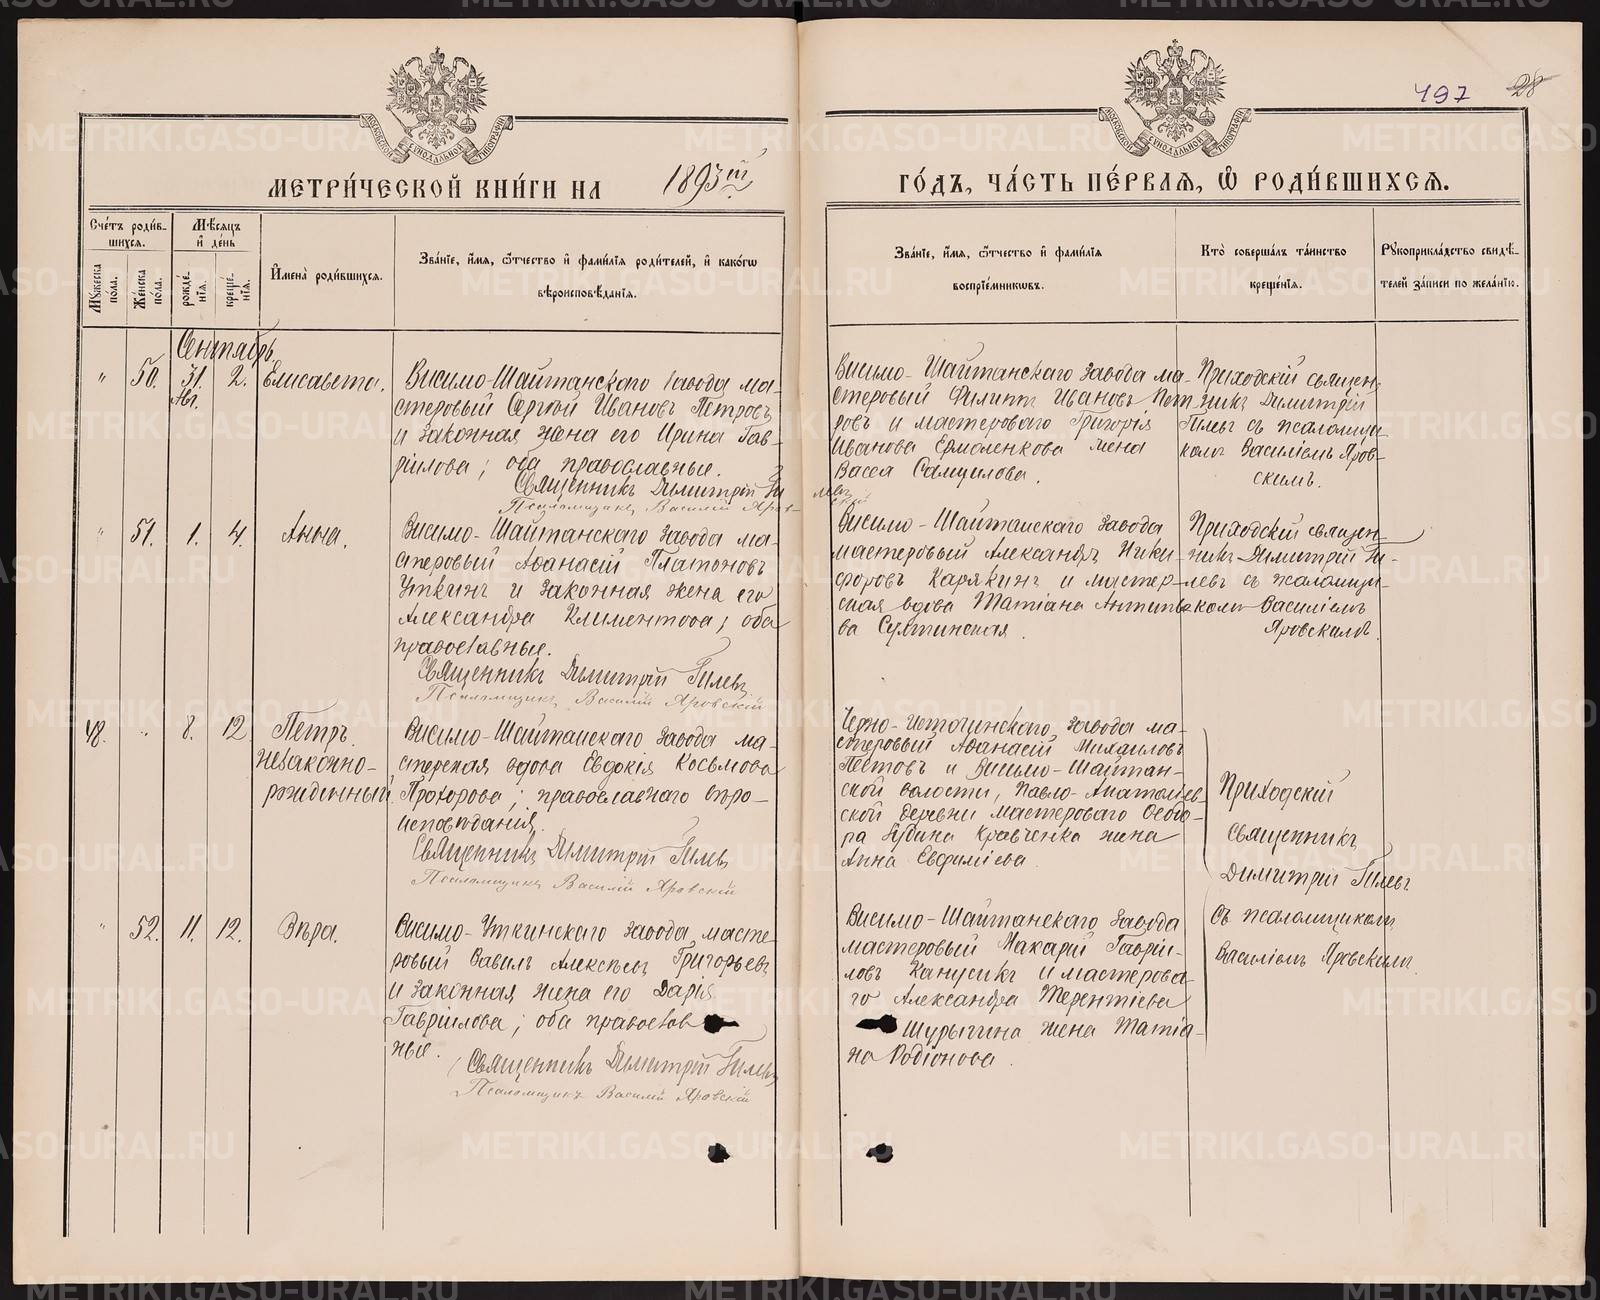 497 28
МЕТРИ́ЧЕСКОЙ КНИ́ГИ НА 1893й
ГО́ДЪ, ЧА́СТЬ ПЕ́РВАЯ, Ѽ РОДИ́ВШИХСЯ.
Счетъ роди́вшихся.
Мꙋжеска пола.
Же́нска по́ла.
Мѣ́сяцъ и҆ де́нь
рожде́нїя.
креще́нїя.
И҆мена̀ роди́вшихся.
Зва́нїе, и҆́мя, ѻ҆́тчество и҆ фами́лїя роди́телей, и҆ како́гѡ
вѣроисповѣ́данїя.
Зва́нїе, и҆́мя, ѻ҆́тчество и҆ фами́лїя
воспрїе́мникѡвъ.
Кто̀ соверша́лъ та́инство
креще́нїя.
Рꙋкоприкла́дство свидѣ́-
телей за́писи по жела́нїю.
Сентябрь.
" 50. 31. Авг. 2. Елисавета.
Висимо-Шайтанскаго завода ма-
стеровый Сергѣй Ивановъ Петровъ
и законная жена его Ирина Гав-
ріилова; оба православные.
Священникъ Димитрій Ги-
левъ
Псаломщикъ Василій Яров-
скій
Висимо-Шайтанскаго завода ма-
стеровый Филиппъ Ивановъ Пет-
ровъ и мастероваго Григорія
Иванова Ермоленкова жена
Васса Самуилова.
Приходскій священ-
никъ Димитрій
Гилевъ съ псаломщи-
комъ Василіемъ Яров-
скимъ.
" 51. 1. 4. Анна.
Висимо-Шайтанскаго завода ма-
стеровый Аѳанасій Платоновъ
Уткинъ и законная жена его
Александра Климентова; оба
православные.
Священникъ Димитрій Гилевъ
Псаломщикъ Василій Яровскій
Висимо-Шайтанскаго завода
мастеровый Александръ Ники-
форовъ Карякинъ и мастер-
ская вдова Татіана Антипо-
ва
Приходскій священ-
никъ Димитрій Ги-
левъ съ псаломщи-
комъ Василіемъ
Яровскимъ.
48. " 8. 12. Петръ.
незаконно-
рожденный.
Висимо-Шайтанскаго завода ма-
стерская вдова Евдокія Косьмова
Прохорова; православнаго вѣро-
исповѣданія.
Священникъ Димитрій Гилевъ
Псаломщикъ Василій Яровскій
Черно-Источинскаго завода ма-
стеровый Аѳанасій Михаиловъ
и Висимо-Шайтан-
ской волости, Павло-Анатоліев-
ской деревни мастероваго Ѳеодо-
ра Кравченка жена
Анна Евфиміева.
Приходскій
священникъ
Димитрій Гилевъ
съ псаломщикомъ
Василіемъ Яровскимъ.
" 52. 11. 12. Вѣра.
Висимо-Уткинскаго завода масте-
ровый Вавилъ Алексѣевъ Григорьевъ
и законная жена его Дарія
Гавріилова; оба православ
ные.
Священникъ Димитрій Гилевъ
Псаломщикъ Василій Яровскій
Висимо-Шайтанскаго завода
мастеровый Макарій Гавріи-
ловъ Канусикъ и мастерова-
го Александра Терентіева
Шурыгина жена Татіа-
на Родіонова.